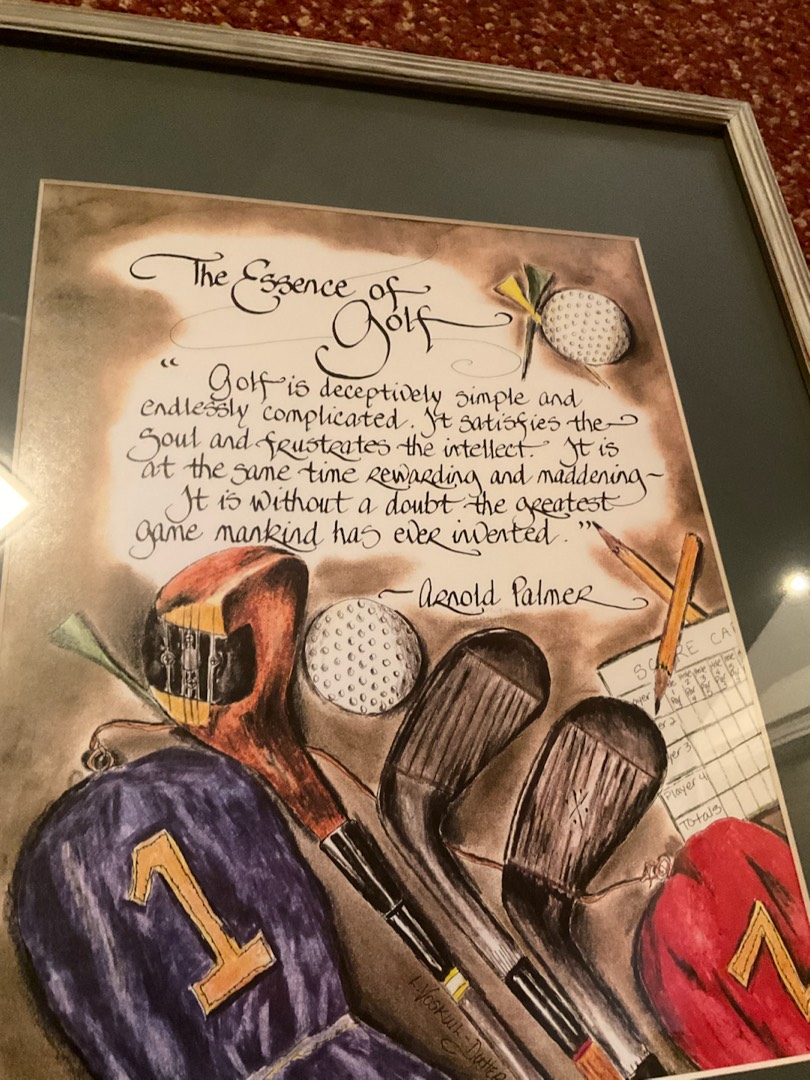 The Essence of
Golf
"Golf is deceptively simple and
endlessly complicated. It satisfies the
Soul and frustrates the intellect. It is
at the same time rewarding and maddening-
It is without a doubt the greatest
game mankind has ever invented."
- Arnold Palmer
SCORE CA
Player 4
Totals
1
L. Voskuil-Dutter